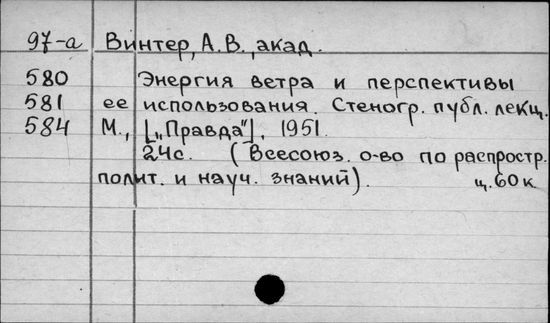 97-а Винтер, А.В., акад.
580 Энергия ветра и перспективы
581 ее использования. Стеногр. публ. лекц.
584 М., [„Правда"], 1951.
24с. (Всесоюз. о-во по распростр.
полит. и науч. знаний). ц. 60 к.